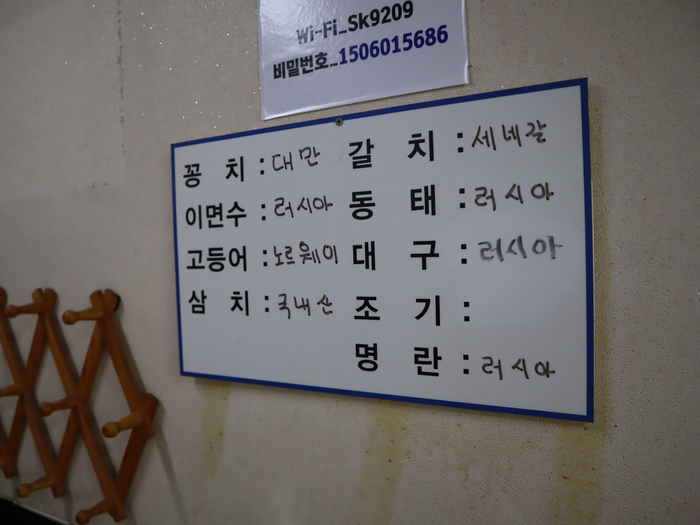 Wi-Fi_Sk9209
비밀번호_1506015686
꽁 치 : 대만
이면수 : 러시아
고등어 : 노르웨이
삼 치 : 국내산
갈 치 : 세네갈
동 태 : 러시아
대 구 : 러시아
조 기 :
명 란 : 러시아